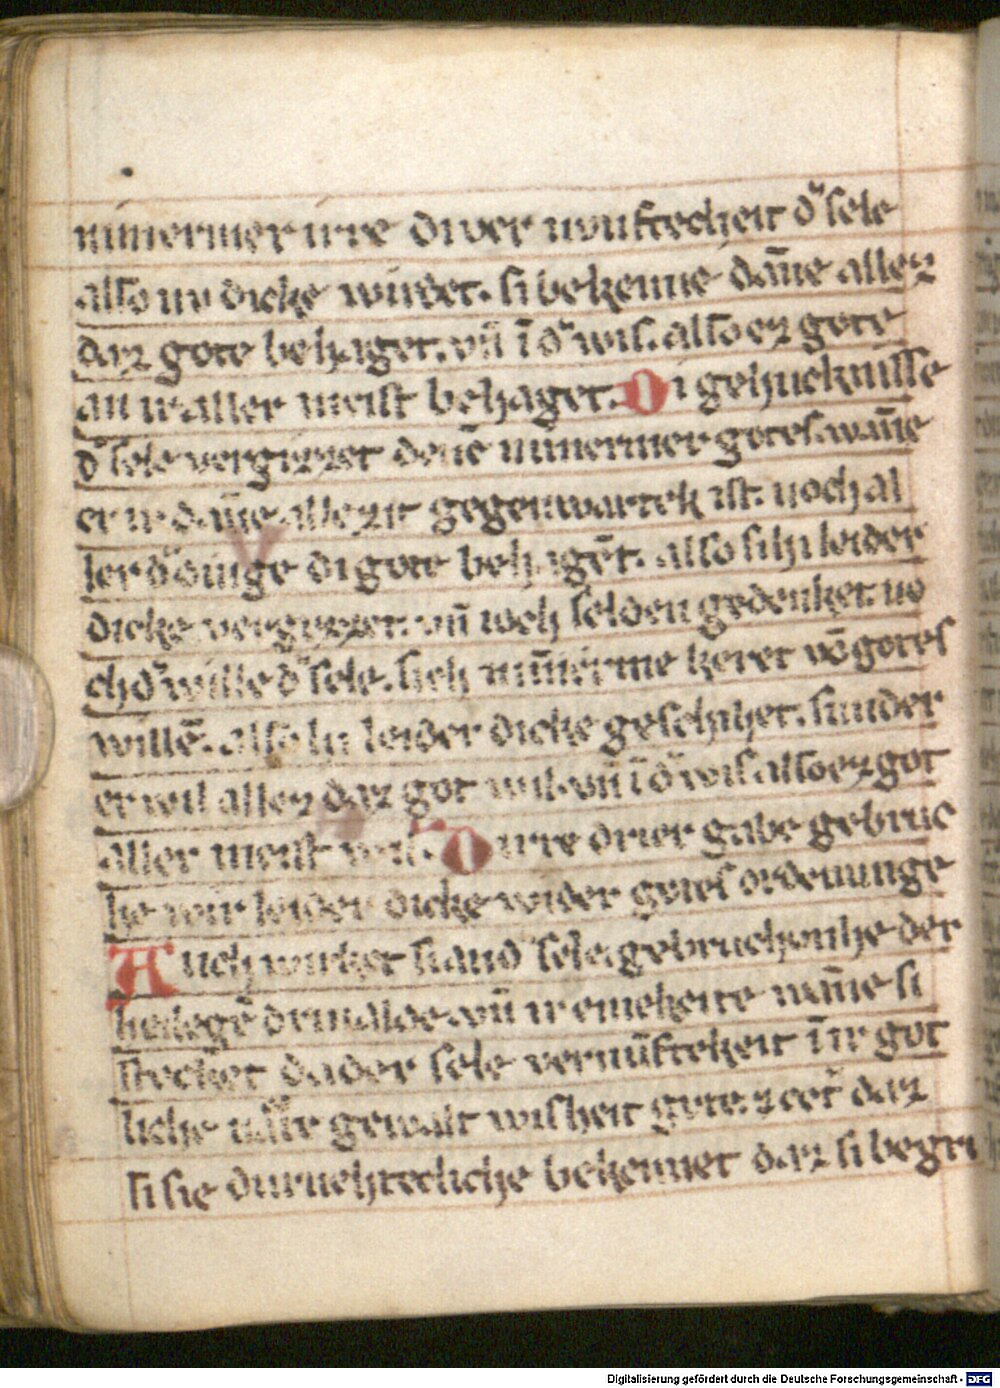 nimermer irre diu ver nvnftecheit d͛ sele
also nv dicke wirdet. si bekenne dan̄e allez
daz gote behaget. vn̄ ī d͛ wis. also ez gote
an ir aller meist behaget. Di gehucknisse
d͛ sele vergizzet den̄e nimermer gotes. wan̄e
er ir dan̄e alle zit gegenwartek ist. noch al
ler d͛ dinge di gote behagēt. also si hi leider
dicke vergizzet. vn̄ ioch selden gedenket. no
ch d͛ wille d͛ sele. sich nim̄erme keret vō gotes
willē. also hi leider dicke geschihet. sunder
er wil allez daz got wil. vn̄ ī d͛ wis also ez got
aller meist wil. Dirre drier gabe gebruc
he wir leider dicke wider gotes ordenunge
Auch wirket si an d͛ sele. gebruchonhe der
heilegē driualde. vn̄ ir einekeite wan̄e si
stecket da der sele vernūftekeit ī ir got
liche nāture gewalt wisheit gute. ⁊ cet͛ daz
si sie durnehtecliche bekennet daz si begri
Digitalisierung gefördert durch die Deutsche Forschungsgemeinschaft - DFG